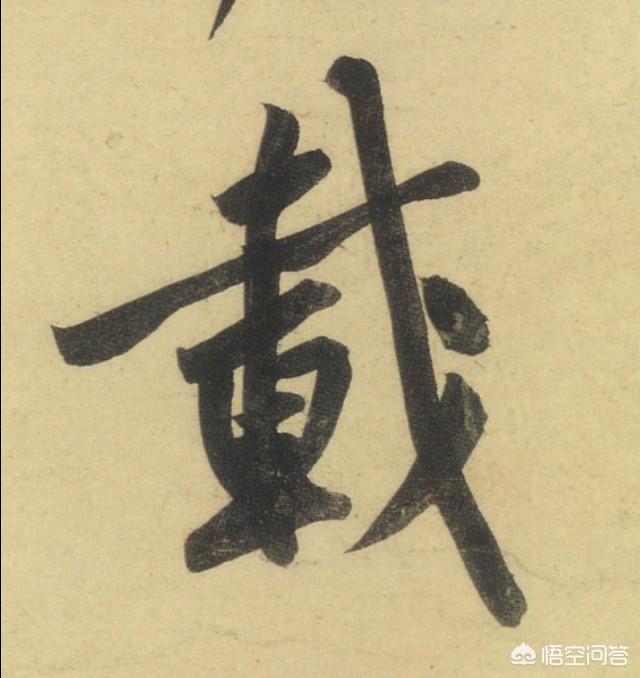 載
悟空问答